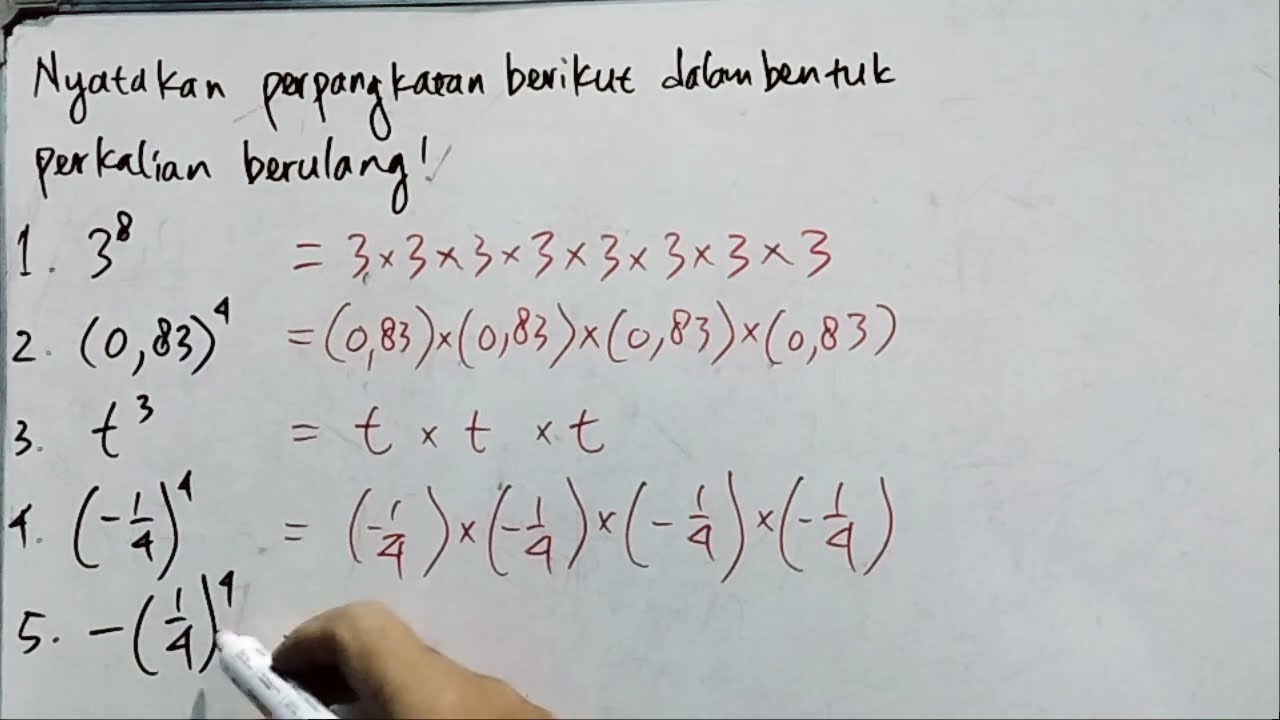 Nyatakan perpangkatan berikut dalam bentuk
perkalian berulang!
1. 3⁸ = 3 × 3 × 3 × 3 × 3 × 3 × 3 × 3
2. (0,83)⁴ = (0,83) × (0,83) × (0,83) × (0,83)
3. t³ = t × t × t
4. (-1/4)⁴ = (-1/4) × (-1/4) × (-1/4) × (-1/4)
5. -(1/4)⁴